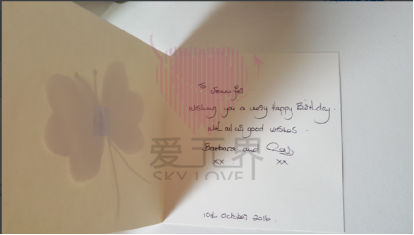 To
Wishing you a very happy Birthday.
With all good wishes
Barbara and
xx xx
爱无界
SKY LOVE
10th October 2016.